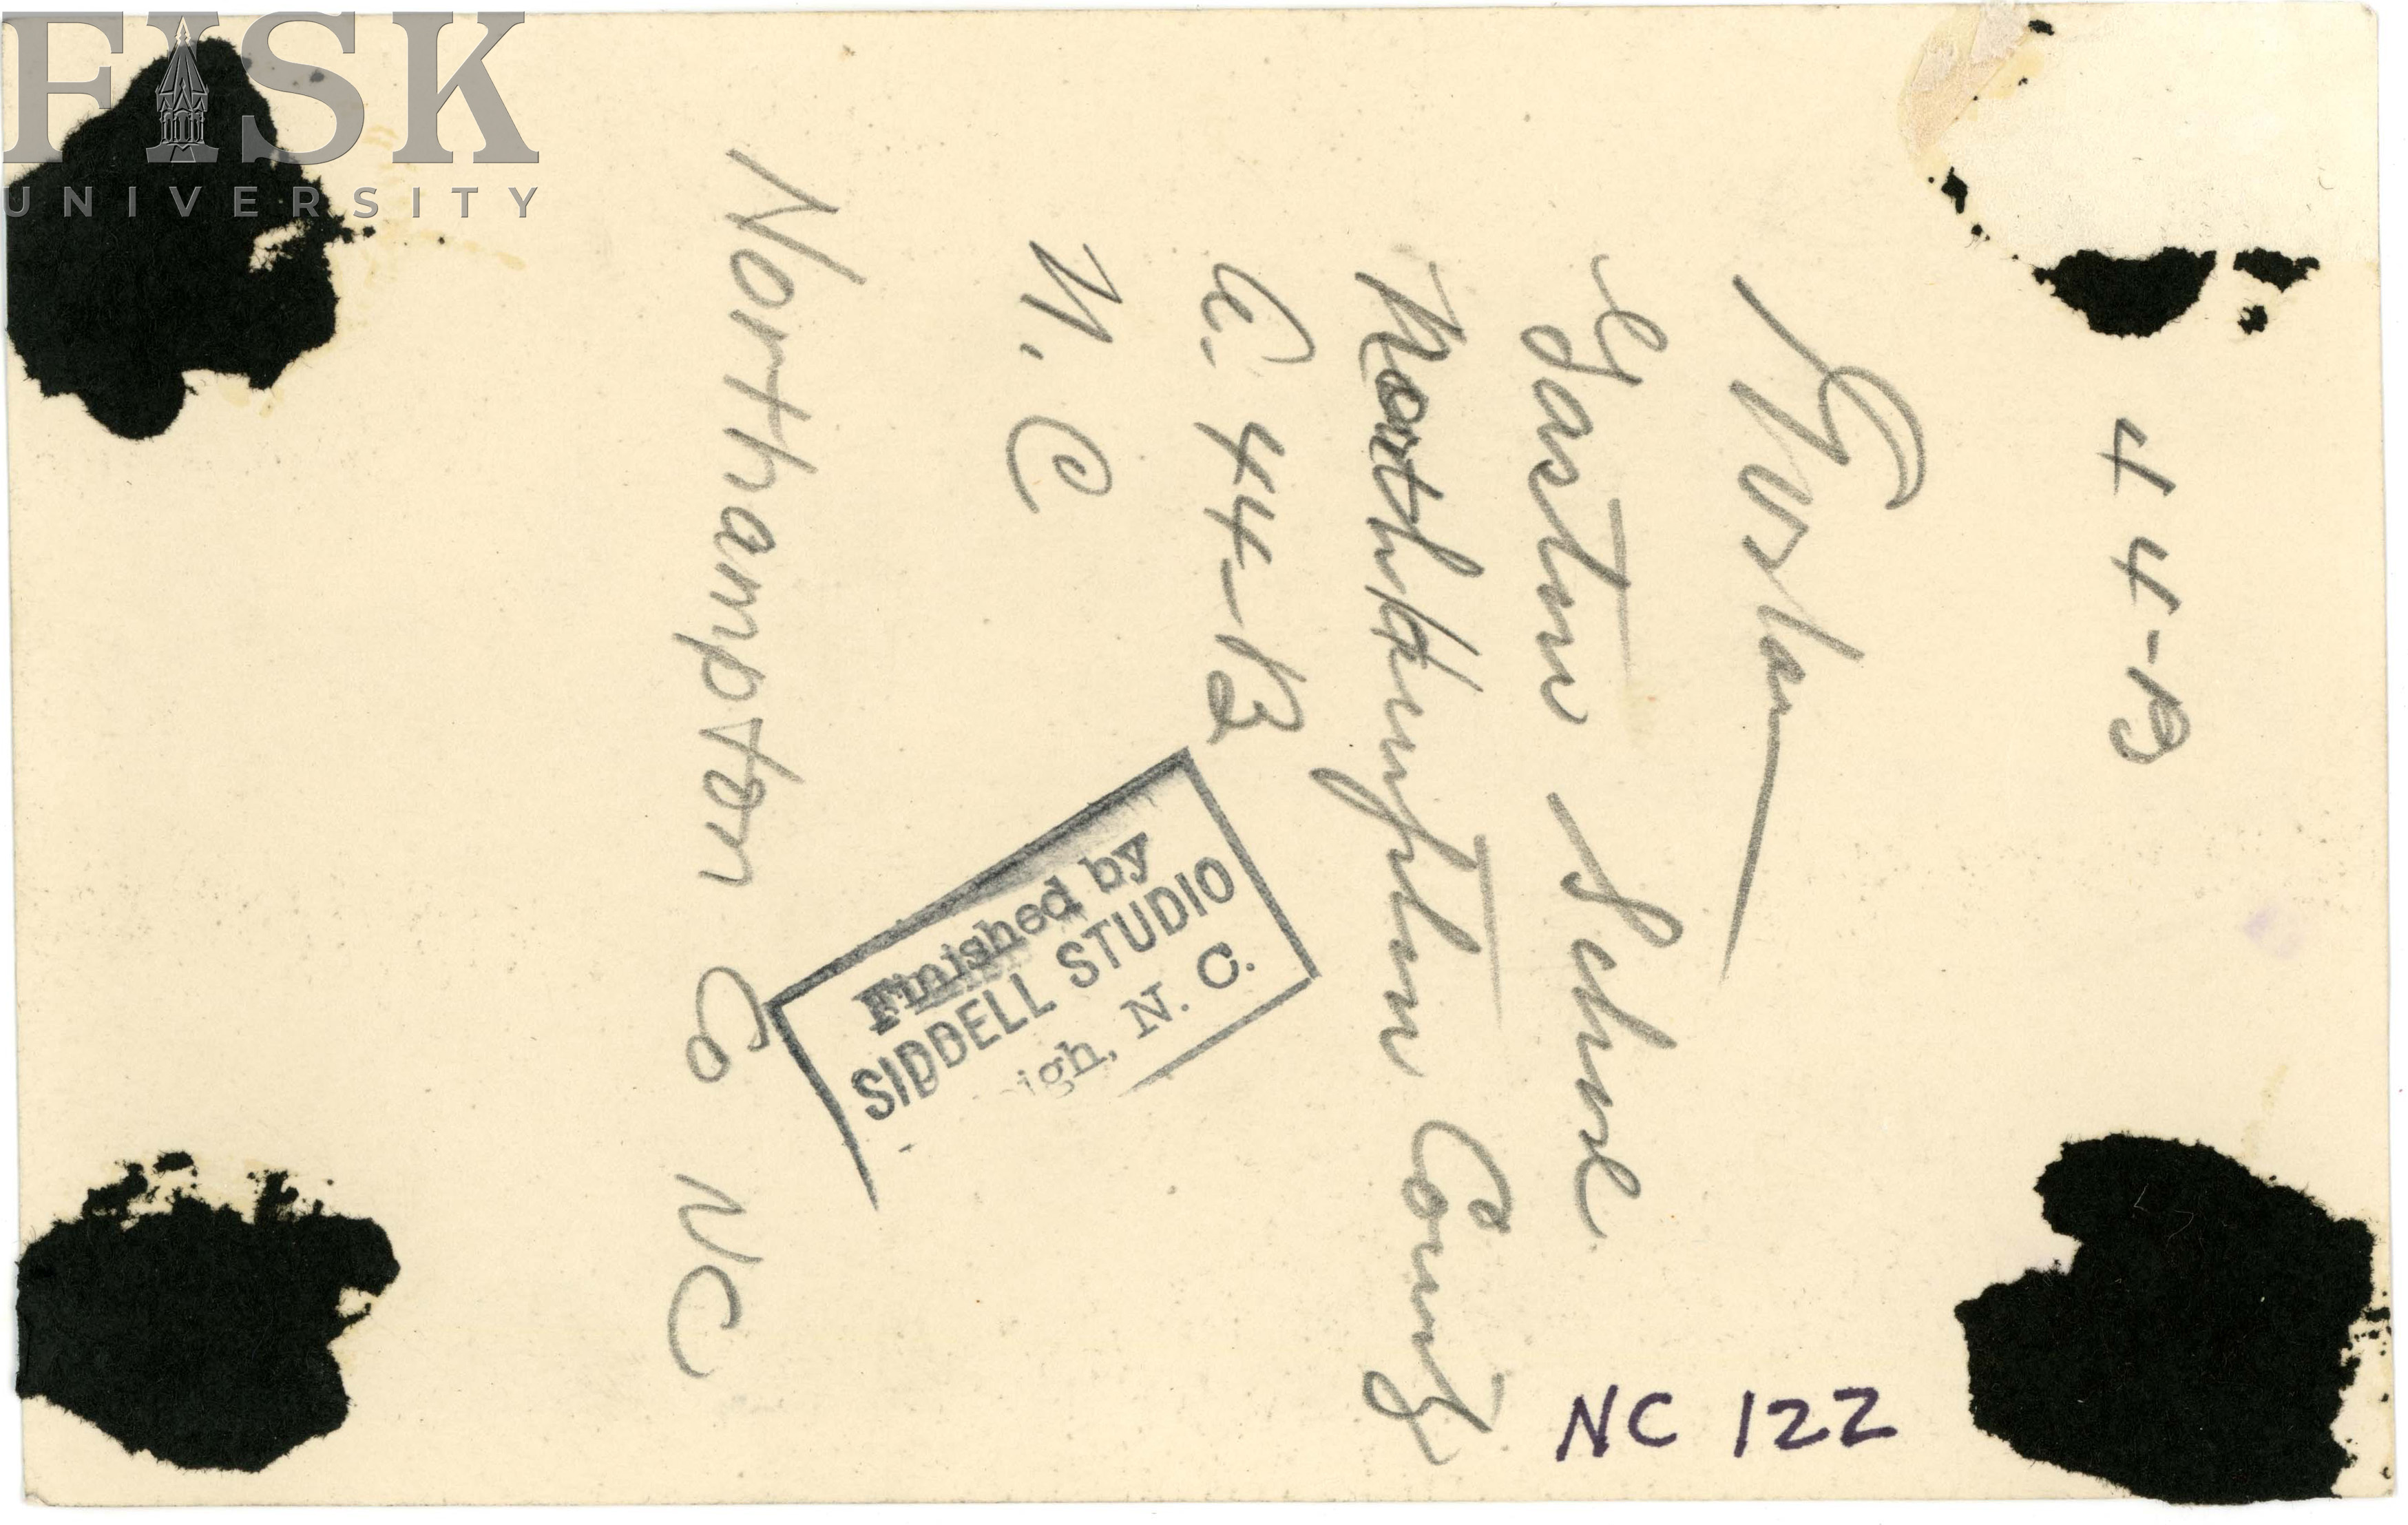 FISK
UNIVERSITY
44-B
Gaston School
Northhampton County
C. 44-B
N. C
Northampton Co NC
Finished by
SIDDELL STUDIO
igh, N. C.
NC 122